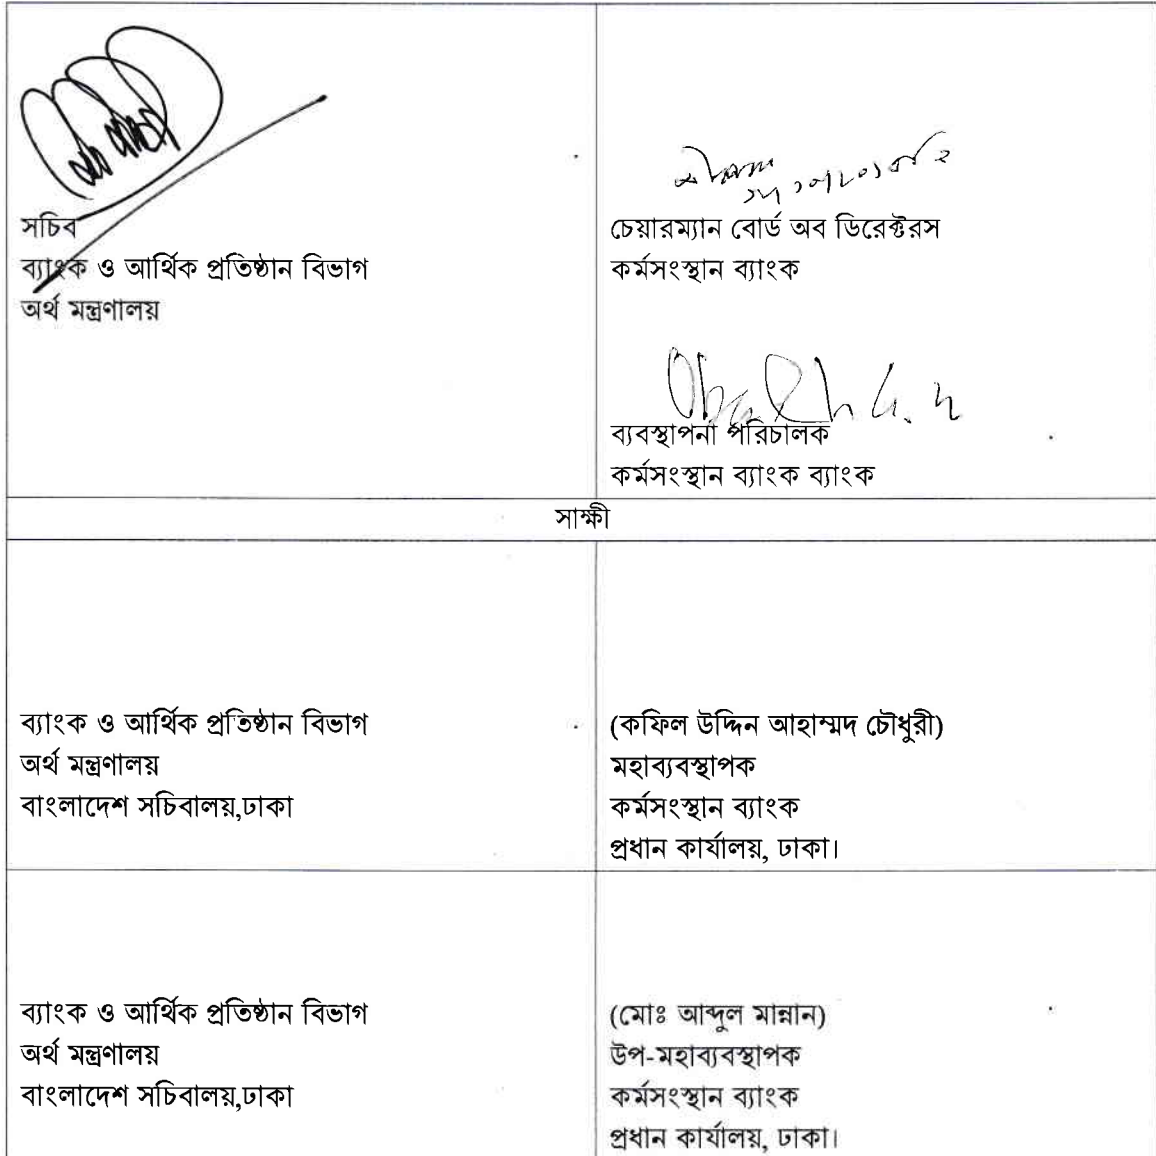 সচিব
ব্যাংক ও আর্থিক প্রতিষ্ঠান বিভাগ
অর্থ মন্ত্রণালয়
চেয়ারম্যান বোর্ড অব ডিরেক্টরস
কর্মসংস্থান ব্যাংক
ব্যবস্থাপনা পরিচালক
কর্মসংস্থান ব্যাংক ব্যাংক
সাক্ষী
ব্যাংক ও আর্থিক প্রতিষ্ঠান বিভাগ
অর্থ মন্ত্রণালয়
বাংলাদেশ সচিবালয়,ঢাকা
(কফিল উদ্দিন আহাম্মদ চৌধুরী)
মহাব্যবস্থাপক
কর্মসংস্থান ব্যাংক
প্রধান কার্যালয়, ঢাকা।
ব্যাংক ও আর্থিক প্রতিষ্ঠান বিভাগ
অর্থ মন্ত্রণালয়
বাংলাদেশ সচিবালয়,ঢাকা
(মোঃ আব্দুল মান্নান)
উপ-মহাব্যবস্থাপক
কর্মসংস্থান ব্যাংক
প্রধান কার্যালয়, ঢাকা।